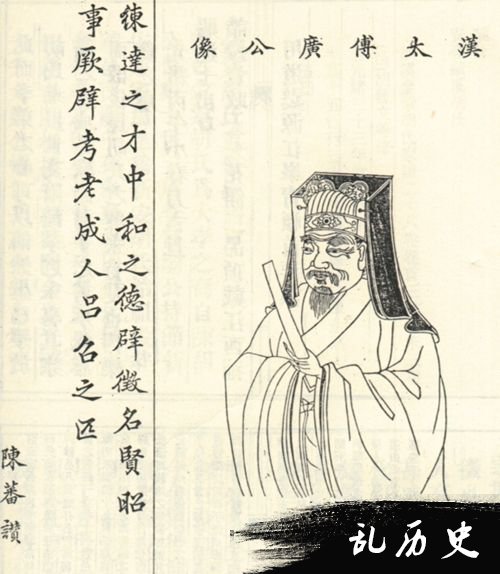 漢太傅廣公像
練達之才中和之德辟徵名賢昭
事厥辟考老成人呂召之匹
陳蕃讚
乱历史